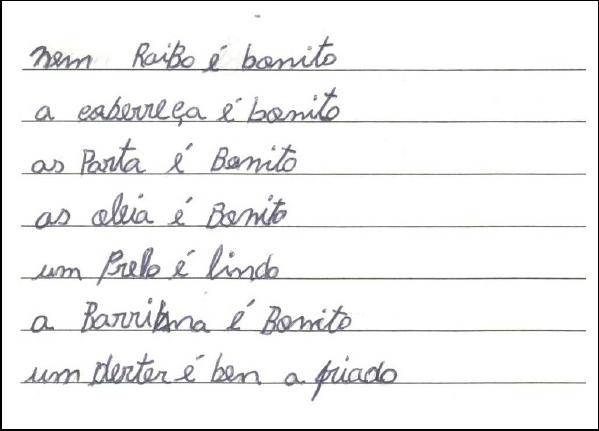 nem Raibo é bonito
a caberreça é bonito
as Parta é Bonito
as oleia é Bonito
um Prelo é lindo
a Barribna é Bonito
um derter é ben a friado